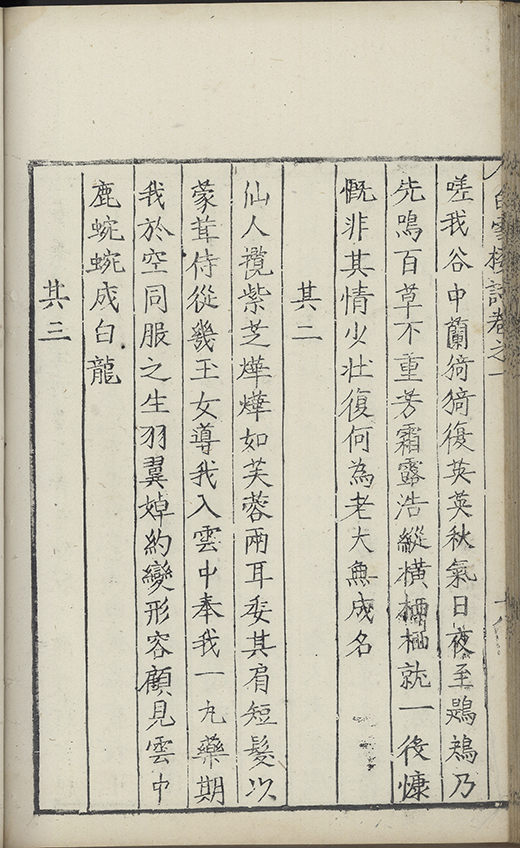 白雪樓詩卷之一
嗟我谷中蘭猗猗復英英秋氣日夜至鶗鴂乃
先鳴百草不重芳霜露浩縱橫栖栖就一後慷
慨非其情少壯復何為老大無成名
其二
仙人攬紫芝燁燁如芙蓉兩耳委其肩短髮以
蒙茸侍從幾玉女導我入雲中奉我一九藥期
我於空同服之生羽翼婥約變形容顧見雲中
鹿蜿蜿成白龍
其三